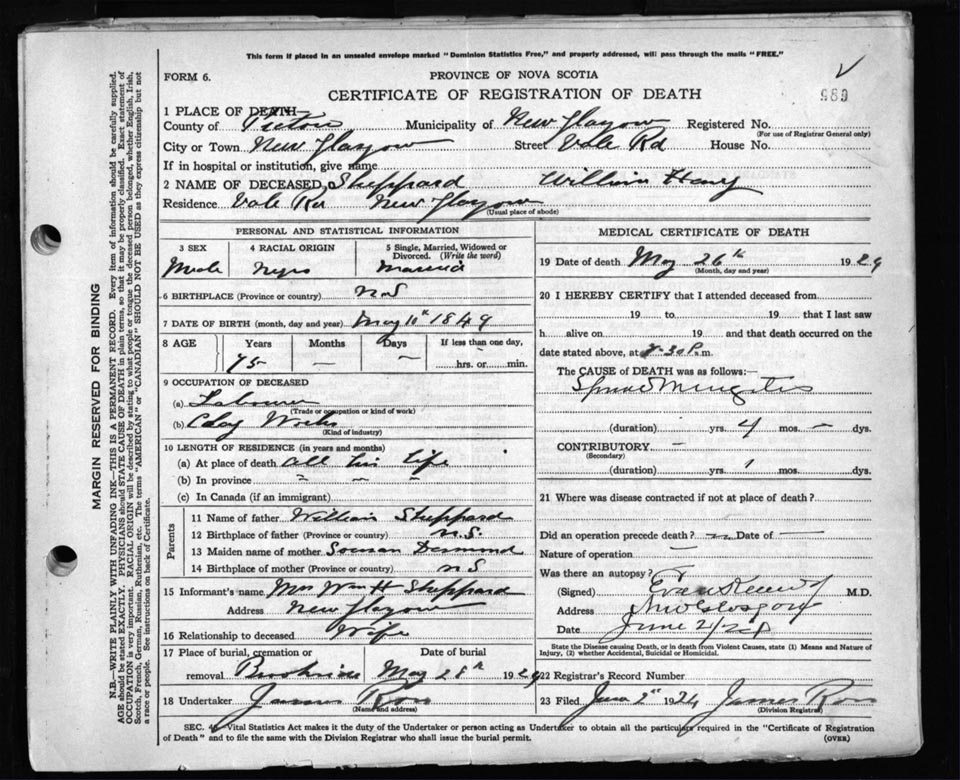 This form if placed in an unsealed envelope marked "Dominion Statistics Free," and properly addressed, will pass through the mails "FREE."
FORM 6.
PROVINCE OF NOVA SCOTIA
CERTIFICATE OF REGISTRATION OF DEATH
989
1 PLACE OF DEATH—
County of Pictou Municipality of New Glasgow Registered No.
(For use of Registrar General only)
City or Town New Glasgow Street Vale Rd House No.
If in hospital or institution, give name
2 NAME OF DECEASED Sheppard William Henry
Residence Vale Rd New Glasgow
(Usual place of abode)
PERSONAL AND STATISTICAL INFORMATION
3 SEX
Male
4 RACIAL ORIGIN
Negro
5 Single, Married, Widowed or Divorced. (Write the word)
Married
6 BIRTHPLACE (Province or country) N S
7 DATE OF BIRTH (month, day and year) May 11th 1849
8 AGE Years Months Days If less than one day,
75 — — hrs. or min.
9 OCCUPATION OF DECEASED
(a) Labourer
(Trade or occupation or kind of work)
(b) Clay Works
(Kind of industry)
10 LENGTH OF RESIDENCE (in years and months)
(a) At place of death all his life
(b) In province " — "
(c) In Canada (if an immigrant)
Parents
11 Name of father William Sheppard
12 Birthplace of father (Province or country) N.S.
13 Maiden name of mother Desmond
14 Birthplace of mother (Province or country) N S
15 Informant's name Mrs Wm H Sheppard
Address New Glasgow
16 Relationship to deceased Wife
17 Place of burial, cremation or removal Date of burial
May 28th 192
18 Undertaker James Ross
(Name and address)
MEDICAL CERTIFICATE OF DEATH
19 Date of death May 26th 192
(Month, day and year)
20 I HEREBY CERTIFY that I attended deceased from
19 to 19 that I last saw
h alive on 19 and that death occurred on
date stated above, at 30 P.m.
The CAUSE of DEATH was as follows:
(duration) yrs. 4 mos. — dys.
CONTRIBUTORY —
(Secondary)
(duration) yrs. mos. dys.
21 Where was disease contracted if not at place of death?
Did an operation precede death? — Date of —
Nature of operation —
Was there an autopsy?
(Signed) M.D.
Address New Glasgow
Date June
State the Disease causing Death, or in death from Violent Causes, state (1) Means and Nature of Injury, (2) whether Accidental, Suicidal or Homicidal.
22 Registrar's Record Number
23 Filed 192 James Ross
(Division Registrar)
SEC. 4—Vital Statistics Act makes it duty of the Undertaker or person acting as Undertaker to obtain all the particulars required in the "Certificate of Registration
of Death" and to file the same with the Division Registrar who shall issue the burial permit.
(OVER)
MARGIN RESERVED FOR BINDING
N.B.—WRITE PLAINLY WITH UNFADING INK—THIS IS A PERMANENT RECORD. Every item of information should be carefully supplied.
AGE should be stated EXACTLY. PHYSICIANS should STATE CAUSE OF DEATH in plain terms, so that it may be properly classified. Exact statement of
OCCUPATION is very important. RACIAL ORIGIN will be described by stating to what people or tongue the deceased person belonged, whether English, Irish,
Scotch, French, German, Russian, Ruthenian, etc. The terms "AMERICAN" or "CANADIAN" SHOULD NOT BE USED as they express citizenship but not
a race or people. See instructions on back of Certificate.